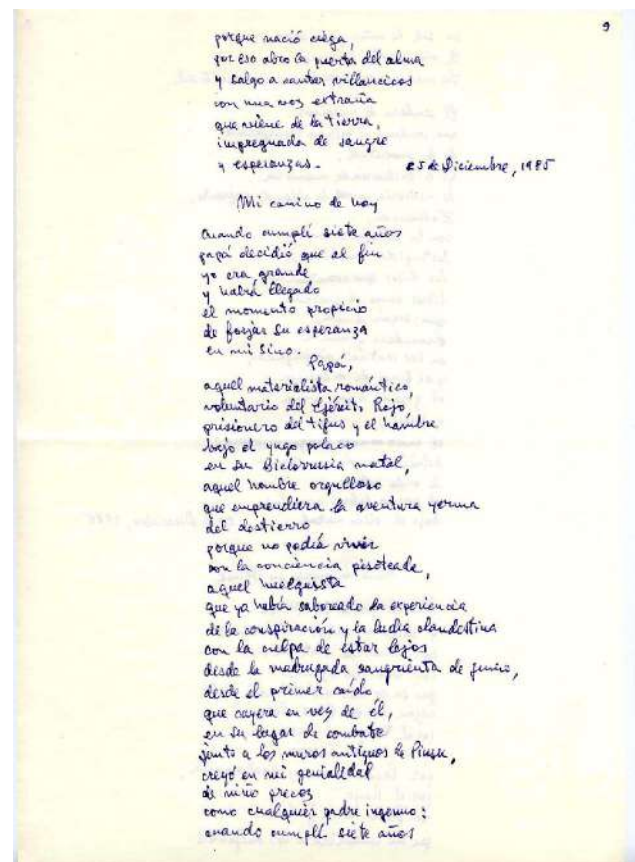 9
porque nació ciega,
por eso abro la puerta del alma
y salgo a cantar villancicos
con una voz extraña
que viene de la tierra,
impregnada de sangre
y esperanzas.
25 de Diciembre, 1985
Mi camino de hoy
Cuando cumplí siete años
papá decidió que al fin
yo era grande
y había llegado
el momento propicio
de forjar su esperanza
en mi sino.
Papá,
aquel materialista romántico,
voluntario del Ejército Rojo,
prisionero del tifus y el hambre
bajo el yugo polaco
en su Bielorrusia natal,
aquel hombre orgulloso
que emprendiera la aventura yerma
del destierro
porque no podía vivir
con la conciencia pisoteada,
aquel huelguista
que ya había saboreado la experiencia
de la conspiración y la lucha clandestina
con la culpa de estar lejos
desde la madrugada sangrienta de junio,
desde el primer caído
que cayera en vez de él,
en su lugar de combate
junto a los muros antiguos de Pinsk,
creyó en mi genialidad
de niño precoz
como cualquier padre ingenuo:
cuando cumplí siete años